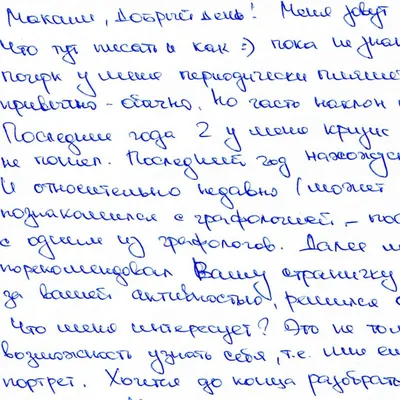 Максим, Добрый день! Меня зовут
Что тут писать и как :) пока не знаю
почерк у меня периодически пляшет
привычно - обычно. Но часто наклон
Последние года 2 у меня кризис
не пошёл. Последний год нахожусь
И относительно недавно (может
познакомился с графологией – пос
с одним из графологов. Далее м
порекомендовал Вашу страничку
за вашей активностью, решился
Что меня интересует? Это не тол
возможность узнать себя, т.е. мне
портрет. Хочется до конца разобрать